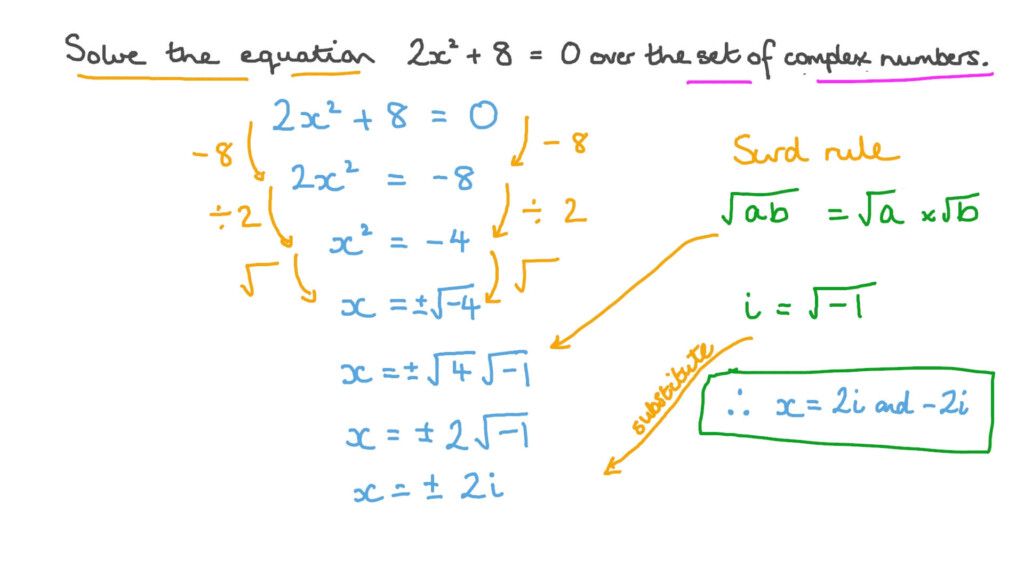 Solve the equation 2x² + 8 = 0 over the set of complex numbers.
2x² + 8 = 0
-8
-8
2x² = -8
÷2
÷ 2
x² = -4
√
√
x = ±√-4
x = ±√4 √-1
x = ± 2√-1
x = ± 2i
Surd rule
√ab = √a × √b
i = √-1
substitute
∴ x = 2i and -2i